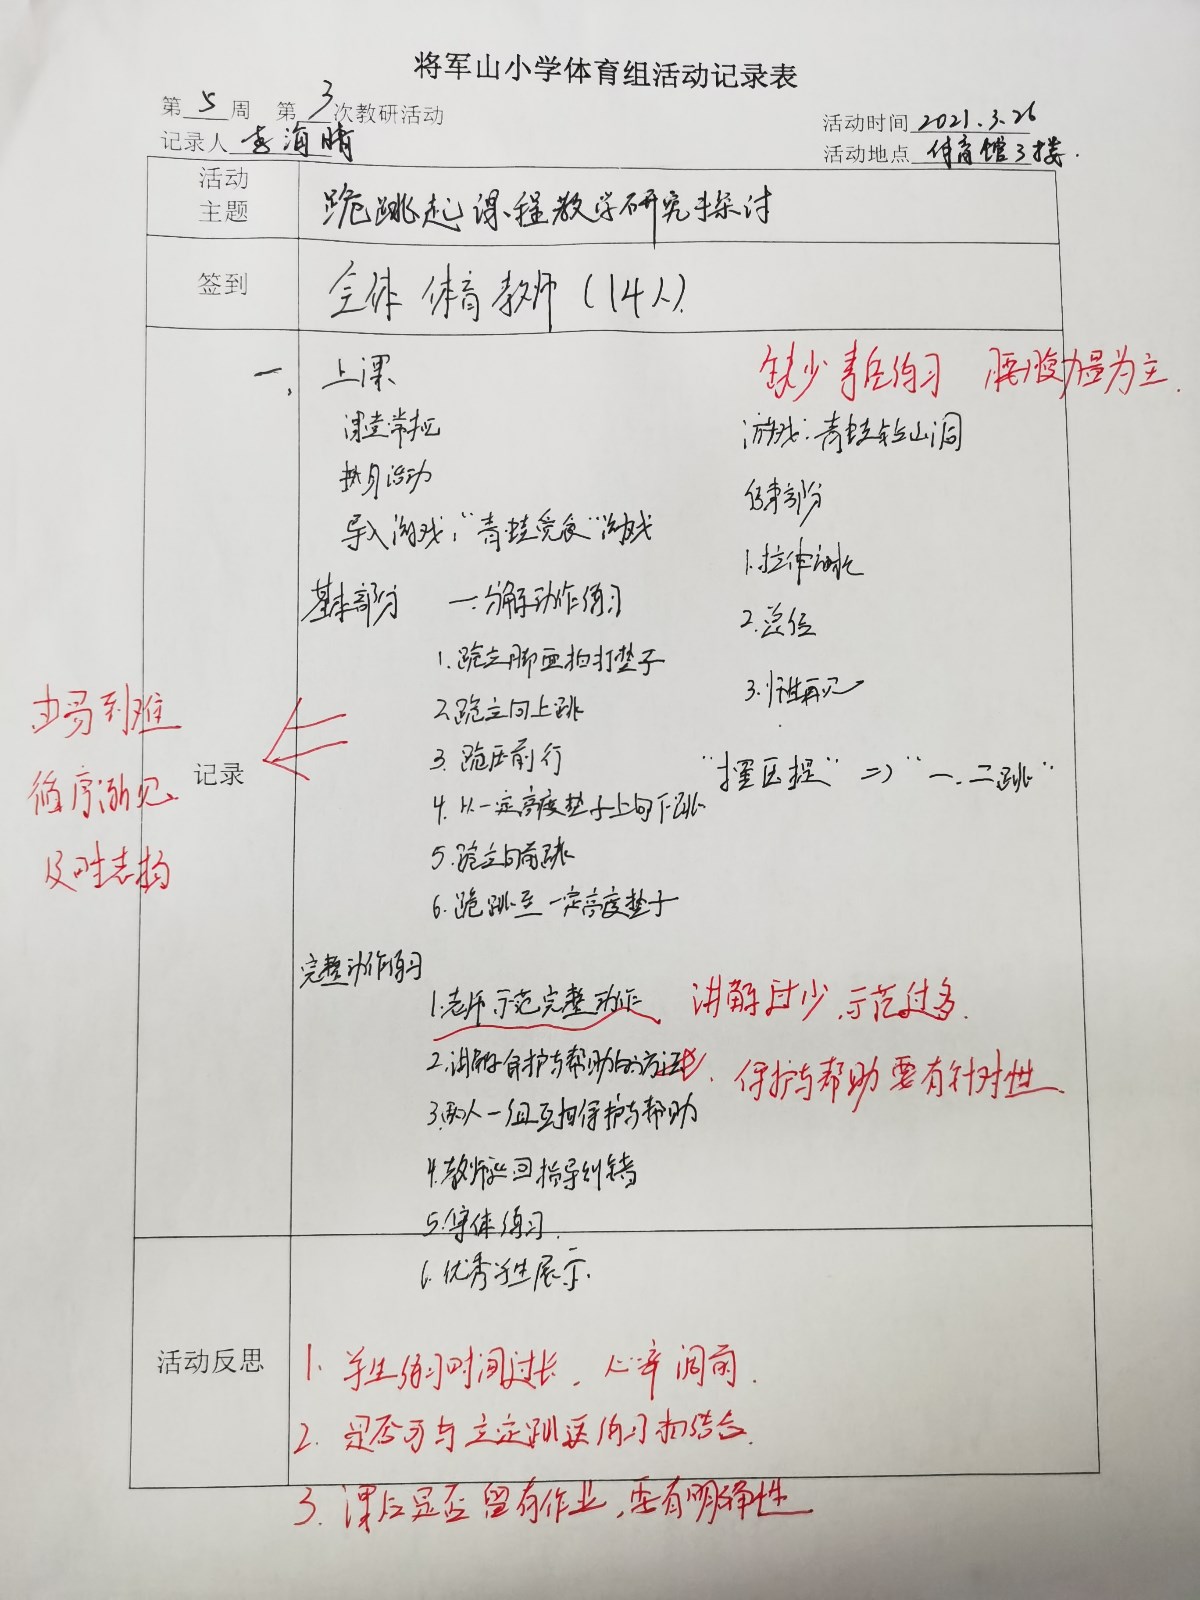 将军山小学体育组活动记录表
第 5 周 第 3 次教研活动
活动时间 2021.3.26
记录人 李海晴
活动地点 体育馆3楼.
活动主题
跪跳起课程教学研究探讨
签到
全体体育教师(14人)
记录
一、上课
课堂常规
热身活动
导入游戏:“青蛙觅食”游戏
基本部分 一:分解动作练习
1.跪立脚面拍打垫子
2.跪立向上跳
3.跪压前行
4.从一定高度垫子上向下跳
5.跪立向前跳
6.跪跳至一定高度垫子
完整动作练习
1.老师示范完整动作
2.讲解保护与帮助的方法
3.两人一组互相保护与帮助
4.教师巡回指导纠错
5.集体练习.
6.优秀学生展示.
缺少素质练习 腰腹力量为主.
游戏:青蛙钻山洞
结束部分
1.拉伸放松
2.总结
3.师生再见
=>“一.二跳”
讲解过少,示范过多.
保护与帮助要有针对性
由易到难
循序渐见
及时表扬
活动反思
1. 学生练习时间过长,
2. 是否可与立定跳远练习相结合.
3. 课后是否留有作业,要有明确性